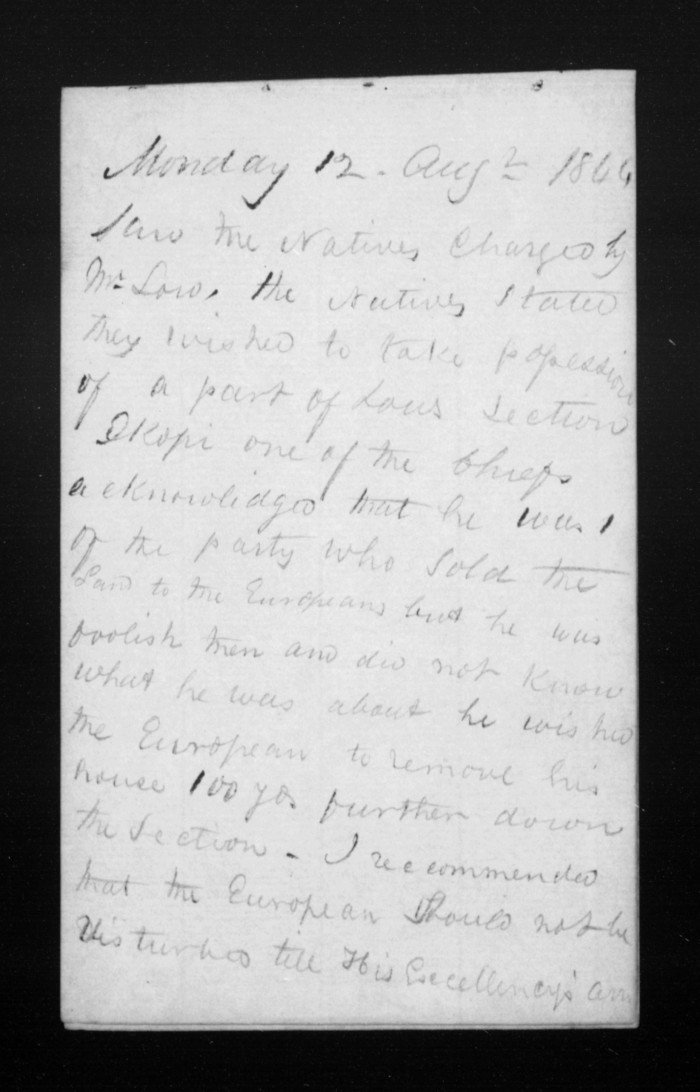 Monday 12 - Augt 184
Saw the Natives Charged by
Mr Low. the Natives Stated
they wished to take possession
of a part of Lows Section
Ekopi one of the Chiefs
acknowledged that he was 1
of the party who sold the
Land to the Europeans but he was
foolish then and did not know
what he was about he wished
the European to remove his
house 100 yds further down
the Section - I recommended
that the European should not be
disturbed till His Excellency's arr